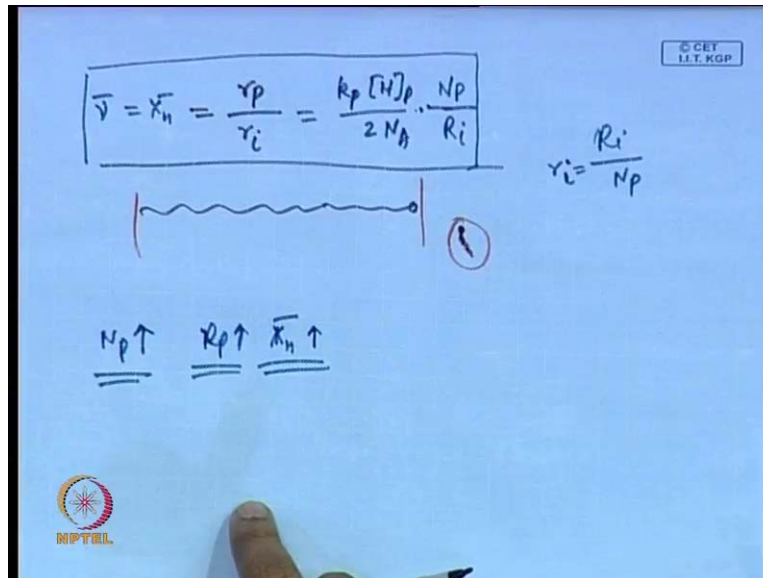 © CET
I.I.T. KGP
ν̄ = x̄n = rp / ri = kp [M]p / 2 NA · Np / Ri
ri = Ri / Np
Np ↑ Rp ↑ x̄n ↑
NPTEL